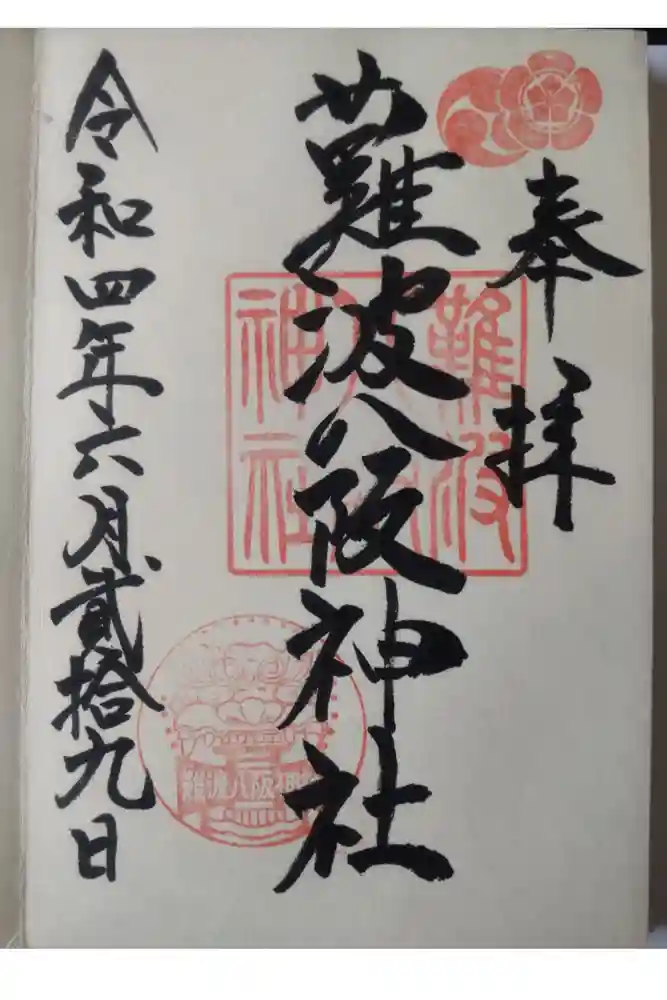 奉拝
難波八阪神社
令和四年六月貳拾九日
難波
八阪
神社
難波八阪神社